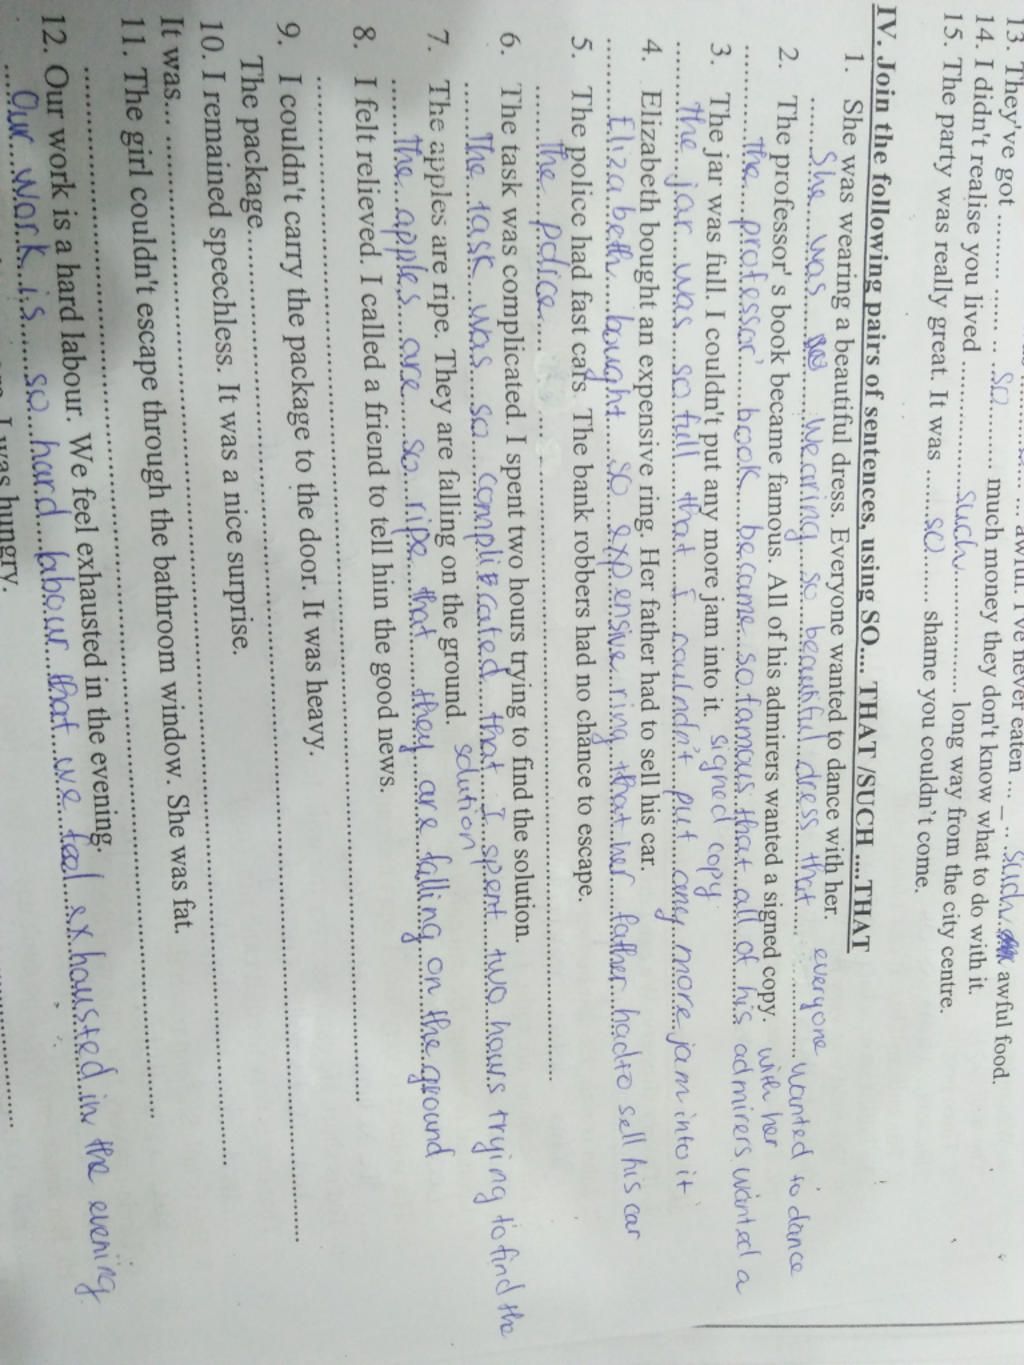 awful. I've never eaten
13. They've got ......... ...... ... so ......... much money they don't know what to do with it.
14. I didn't realise you lived ..................such.................. long way from the city centre.
15. The party was really great. It was ........so....... shame you couldn't come.
... _ .. such awful food.
IV. Join the following pairs of sentences, using SO.... THAT /SUCH ....THAT
1. She was wearing a beautiful dress. Everyone wanted to dance with her.
She was wearing so beautiful dress that everyone wanted to dance
with her
2. The professor' s book became famous. All of his admirers wanted a signed copy.
the professor' book became so famous that all of his admirers wanted a
signed copy
3. The jar was full. I couldn't put any more jam into it.
the jar was so full that i coulndn't put any more jam into it
4. Elizabeth bought an expensive ring. Her father had to sell his car.
Elizabeth bought so expensive ring that her father had to sell his car
5. The police had fast cars. The bank robbers had no chance to escape.
the police
6. The task was complicated. I spent two hours trying to find the solution.
The task was so complicated that I spent two hours trying to find the
solution
7. The apples are ripe. They are falling on the ground.
the apples are so ripe that they are falling on the ground
8. I felt relieved. I called a friend to tell him the good news.
9. I couldn't carry the package to the door. It was heavy.
The package
10. I remained speechless. It was a nice surprise.
It was...
11. The girl couldn't escape through the bathroom window. She was fat.
12. Our work is a hard labour. We feel exhausted in the evening.
Our work is so hard labour that we feel exhausted in the evening
I was hungry.